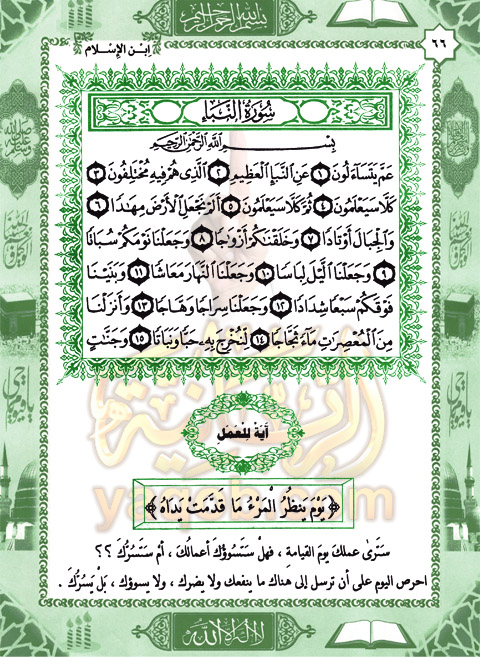 بسم الله الرحمن الرحيم
ابن الإسلام
٦٦
سُورَةُ النَّبَإِ
بِسْمِ اللَّهِ الرَّحْمَٰنِ الرَّحِيمِ
عَمَّ يَتَسَاءَلُونَ ١ عَنِ النَّبَإِ الْعَظِيمِ ٢ الَّذِي هُمْ فِيهِ مُخْتَلِفُونَ ٣
كَلَّا سَيَعْلَمُونَ ٤ ثُمَّ كَلَّا سَيَعْلَمُونَ ٥ أَلَمْ نَجْعَلِ الْأَرْضَ مِهَادًا ٦
وَالْجِبَالَ أَوْتَادًا ٧ وَخَلَقْنَاكُمْ أَزْوَاجًا ٨ وَجَعَلْنَا نَوْمَكُمْ سُبَاتًا
٩ وَجَعَلْنَا الَّيْلَ لِبَاسًا ١٠ وَجَعَلْنَا النَّهَارَ مَعَاشًا ١١ وَبَنَيْنَا
فَوْقَكُمْ سَبْعًا شِدَادًا ١٢ وَجَعَلْنَا سِرَاجًا وَهَّاجًا ١٣ وَأَنْزَلْنَا
مِنَ الْمُعْصِرَاتِ مَاءً ثَجَّاجًا ١٤ لِنُخْرِجَ بِهِ حَبًّا وَنَبَاتًا ١٥ وَجَنَّاتٍ
آيَةٌ لِلْعَمَلِ
﴿ يَوْمَ يَنْظُرُ الْمَرْءُ مَا قَدَّمَتْ يَدَاهُ ﴾
سَتَرَى عملكَ يومَ القيامةِ ، فهلْ سَتَسُوؤُكَ أعمالُكَ ، أمْ سَتَسُرُّكَ ؟؟
احرص اليوم على أن ترسل إلى هناك ما ينفعك ولا يضرك ، ولا يسوؤك ، بَلْ يَسُرُّكَ .
لا إله إلا الله